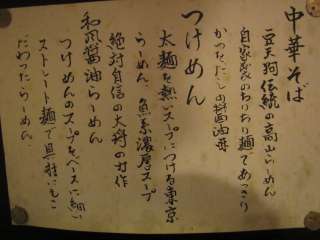 中華そば
豆天狗伝統の高山らーめん
自家製のちぢり麺であっさり
かつおだしの醤油味
つけめん
太麺を熱いスープにつける東京
らーめん、魚系濃厚スープ
絶対自信の大将の力作
和風醤油らーめん
つけめんのスープをベースに細い
ストレート麺で具材にもこ
だわったらーめん。